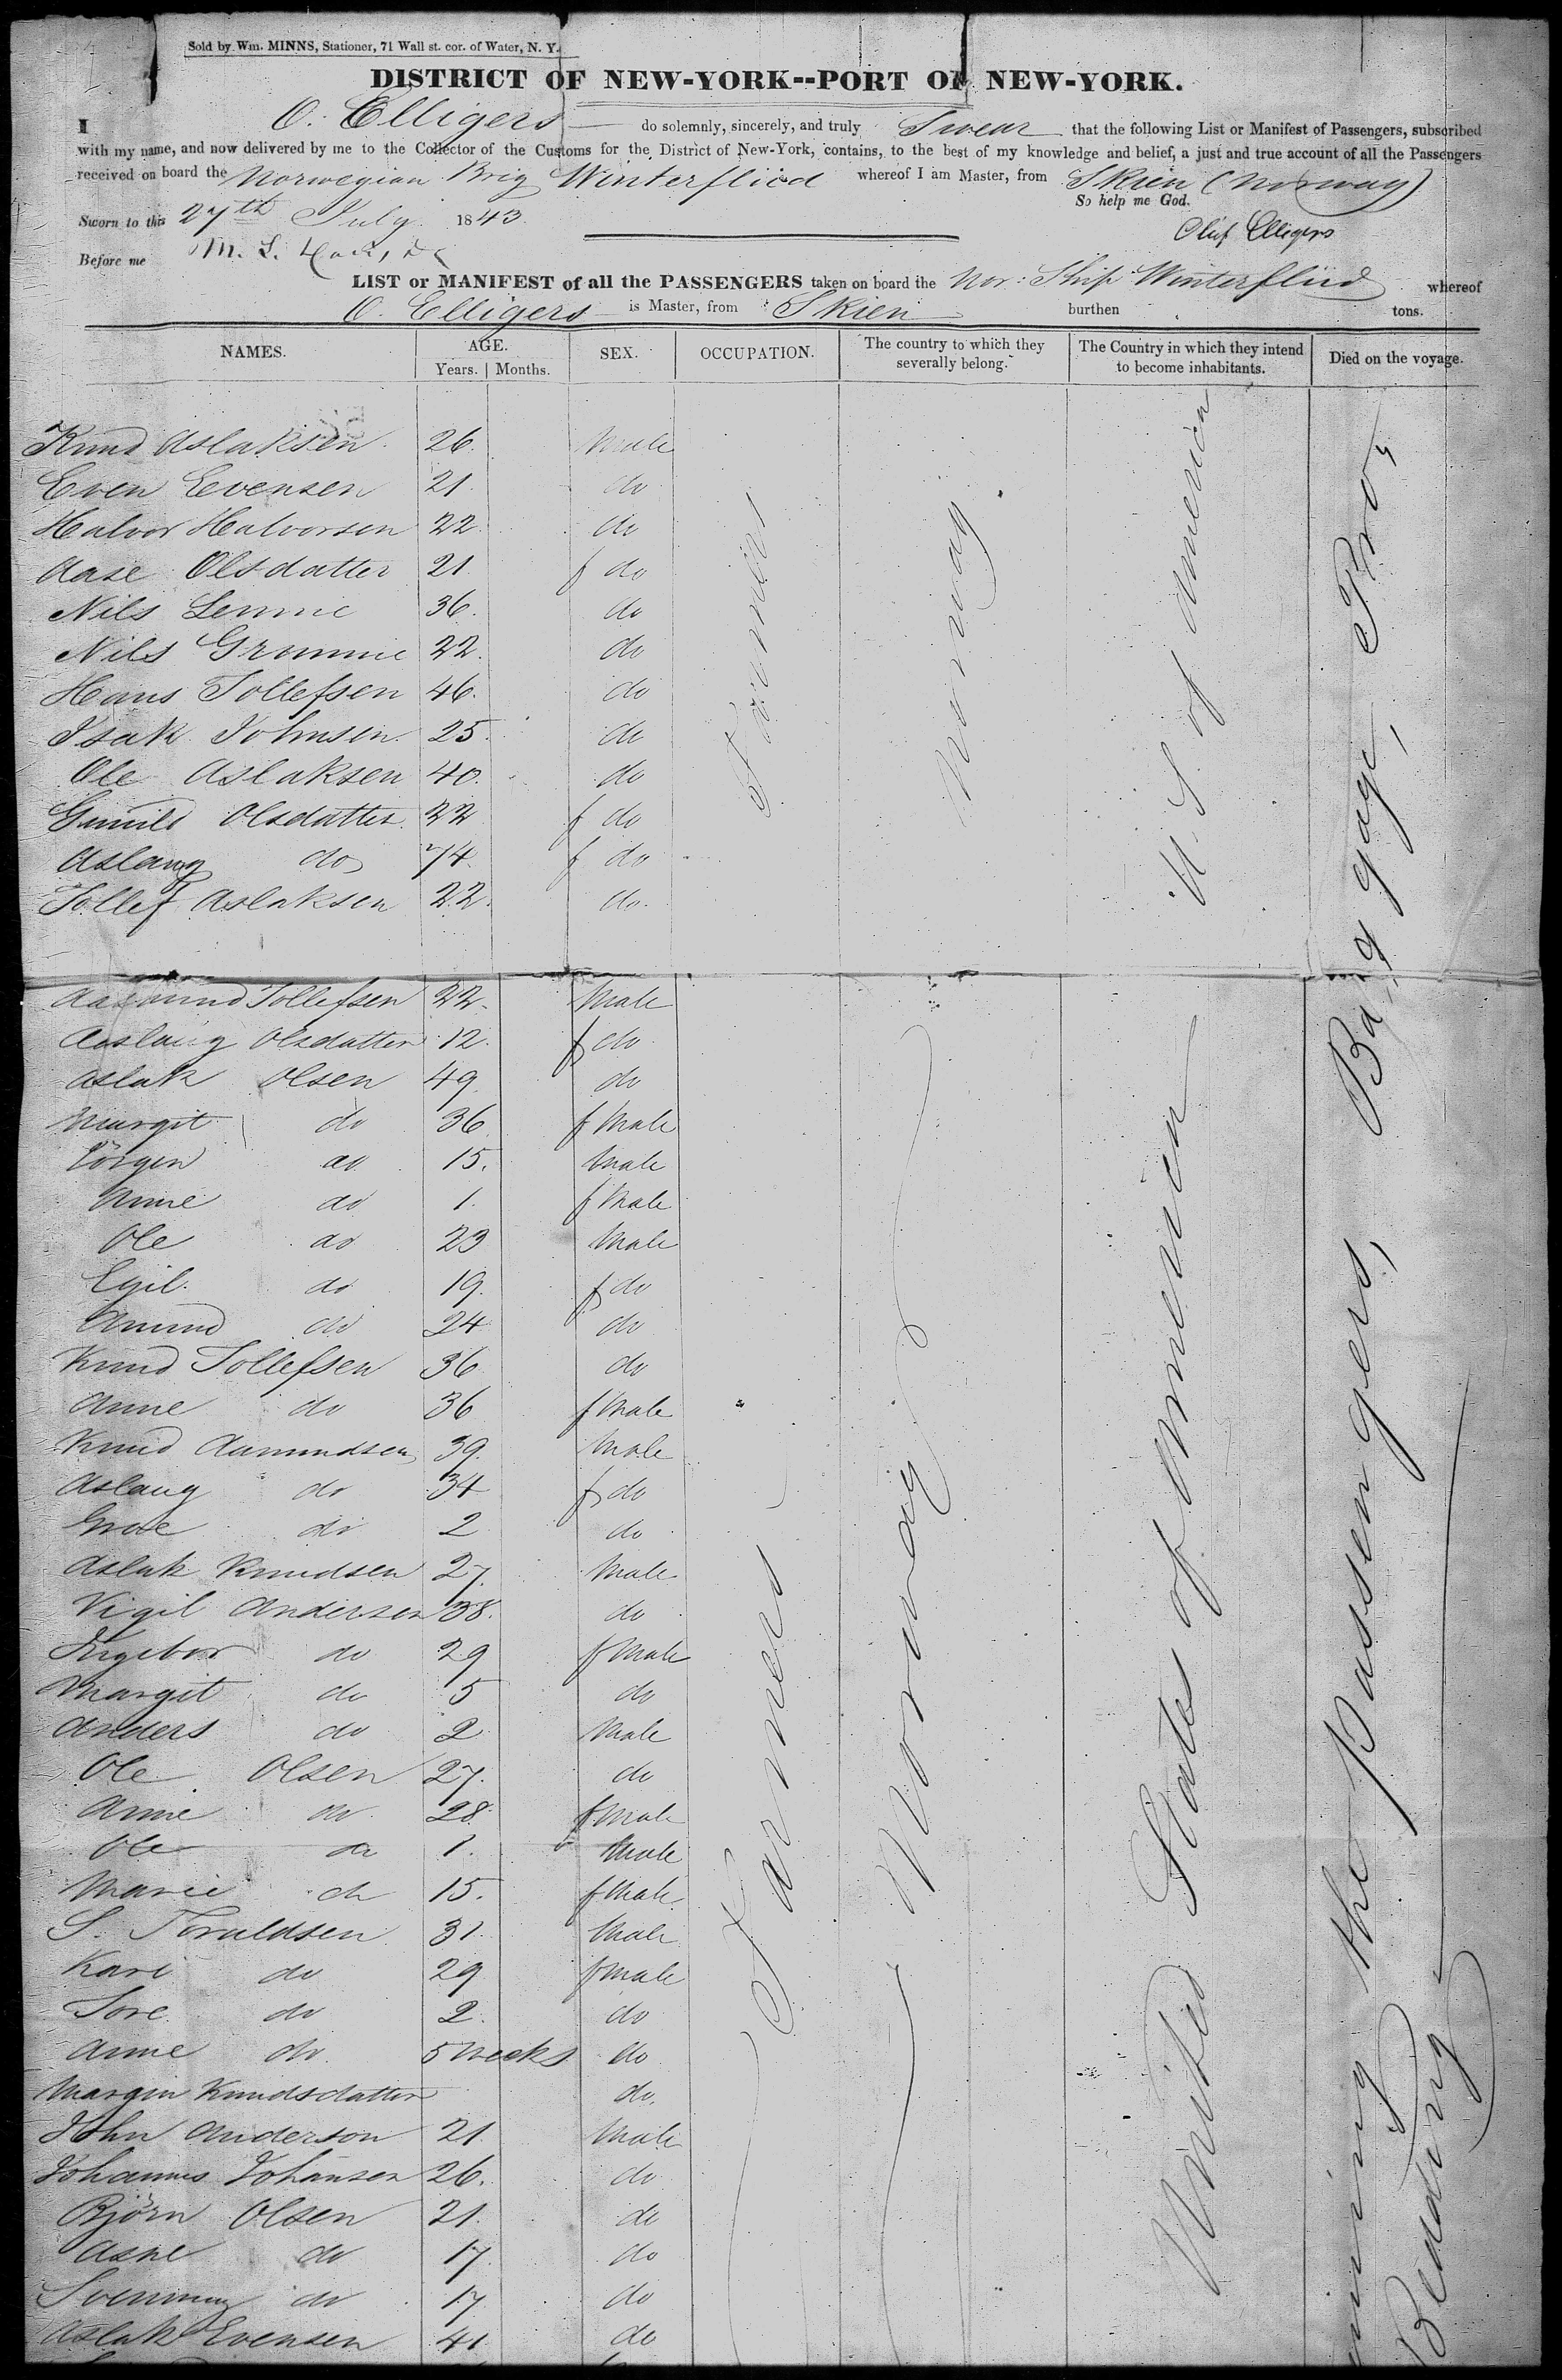 Sold by Wm. MINNS, Stationer, 71 Wall st. cor. of Water, N. Y.
DISTRICT OF NEW-YORK--PORT OF NEW-YORK.
I O. Elligers do solemnly, sincerely, and truly Swear that the following List or Manifest of Passengers, subscribed
with my name, and now delivered by me to the Collector of the Customs for the District of New-York, contains, to the best of my knowledge and belief, a just and true account of all the Passengers
received on board the Norwegian Brig Winterflied whereof I am Master, from Skien (Norway)
So help me God.
Sworn to this 27th July 1843
Oluf Elligers
Before me M. S.
LIST or MANIFEST of all the PASSENGERS taken on board the Nor: Ship Winterflied whereof
O. Elligers is Master, from Skien burthen tons.
NAMES. AGE. Years. Months. SEX. OCCUPATION. The country to which they severally belong. The Country in which they intend to become inhabitants. Died on the voyage.
Knud Aslaksen 26. Male
Even Evensen 21. do
Halvor Halvorsen 22. do
Aase Olsdatter 21. f do
Nils Lemmie 36. do
Nils Grommie 22. do
Hans Tollefsen 46. do
Isak Johnsen. 25. do
Ole Aslaksen 40. do
Gunild Olsdatter. 22 f do
Aslaug do 74. f do
Tollef Aslaksen 22. do.
Aasmund Tollefsen 22. Male
Aaslaug Olsdatter 12. f do
Aslak Olsen 49. do
Margit do 36 f Male
Jörgen do 15. Male
Anne do 1. f Male
Ole do 23 Male
Egil. do 19. f do
Amund do 24 do
Knud Tollefsen 36 do
Anne do 36 f Male
Knud Aamundsen 39. Male
Aslaug do 34 f do
Groe do 2 do
Aslak Knudsen 27. Male
Vigil Andersen 38. do
Ingebor do 29 f Male
Margit do 5 do
Anders do 2 Male
Ole Olsen 27. do
Anne do 28. f Male
Ole do 1. Male
Marie do 15. f Male
S. Toraldsen 31. Male
Kari do 29 f male
Tore do 2. do
Anne do. 5 weeks do
Margin Knudsdatter do.
John Anderson 21. Male
Johannes Johansen 26. do
Björn Olsen 21. do
Asne do 17. do
Svenning do 17 do
Aslak Evensen 41 do
Farmers
Norway
U. S. of America
Farmers
Norway
United States of America
the Passengers, Baggage, Pro,
Bedding